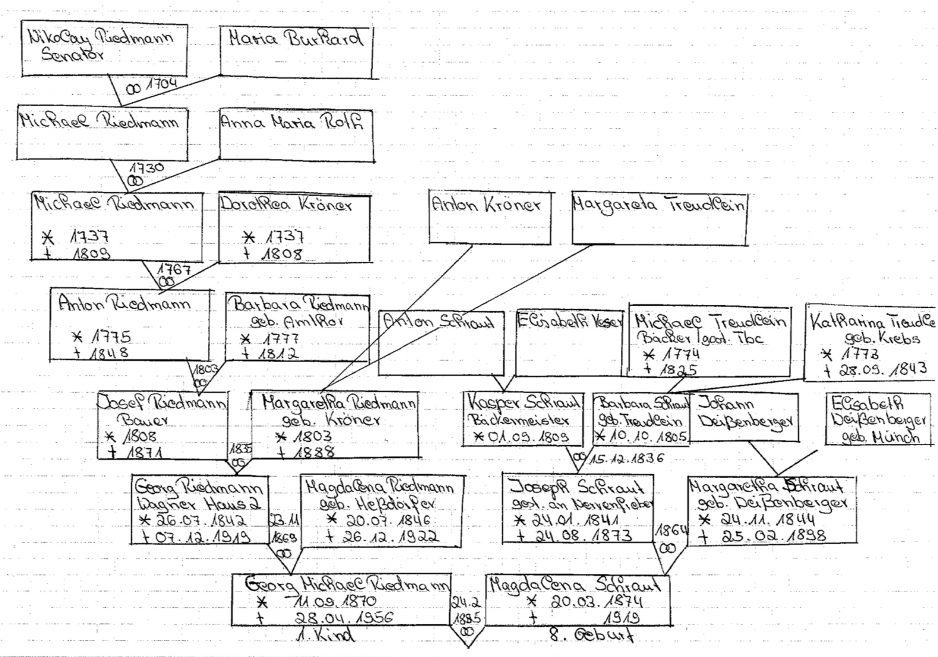 Nikolay Riedmann
Senator
Maria Burkard
∞ 1704
Michael Riedmann
Anna Maria Roth
1730
∞
Michael Riedmann
* 1737
† 1809
Dorothea Kröner
* 1737
† 1808
Anton Kröner
Margareta Treutlein
1767
∞
Anton Riedmann
* 1775
† 1848
Barbara Riedmann
geb. Amthor
* 1777
† 1812
Anton Schraut
Elisabeth
Michael Treutlein
Bäcker / gest. Tbc
* 1774
† 1825
Katharina
geb. Krebs
* 1773
† 28.09.1843
1803
∞
Josef Riedmann
Bauer
* 1808
† 1871
Margaretha Riedmann
geb. Kröner
* 1803
† 1888
Kasper Schraut
Bäckermeister
* 01.09.1809
Barbara Schraut
geb. Treutlein
* 10.10.1805
Johann
Deißenberger
Elisabeth
Deißenberger
geb. Münch
1835
∞
∞ 15.12.1836
Georg Riedmann
Wagner Haus 2
* 26.07.1842
† 07.12.1919
23.11
1869
∞
Magdalena Riedmann
geb. Heßdörfer
* 20.07.1846
† 26.12.1922
Joseph Schraut
gest. an Nervenfieber
* 24.01.1841
† 24.08.1873
1864
∞
Margaretha Schraut
geb. Deißenberger
* 24.11.1844
† 25.02.1898
Georg Michael Riedmann
* 11.09.1870
† 28.04.1956
1. Kind
24.2
1895
∞
Magdalena Schraut
* 20.03.1874
† 1919
8. Geburt